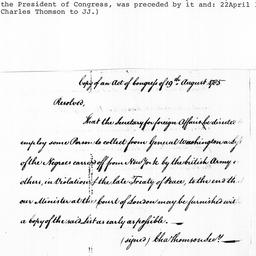 the President of Congress, was preceded by it and: 22April 1
Charles Thomson to JJ.)
Copy of an Act of Congress of 19th August 1785
Resolved,
That the Secretary for foreign Affairs be directed
employ some Person to collect from General Washington a list
of the Negroes carried off from New York by the british Army &
others, in Violation of the late Treaty of Peace, to the end that
our Minister at the Court of London may be furnished with
a copy of the said List as early as possible. —
(signed) Cha Thomson Secy. —